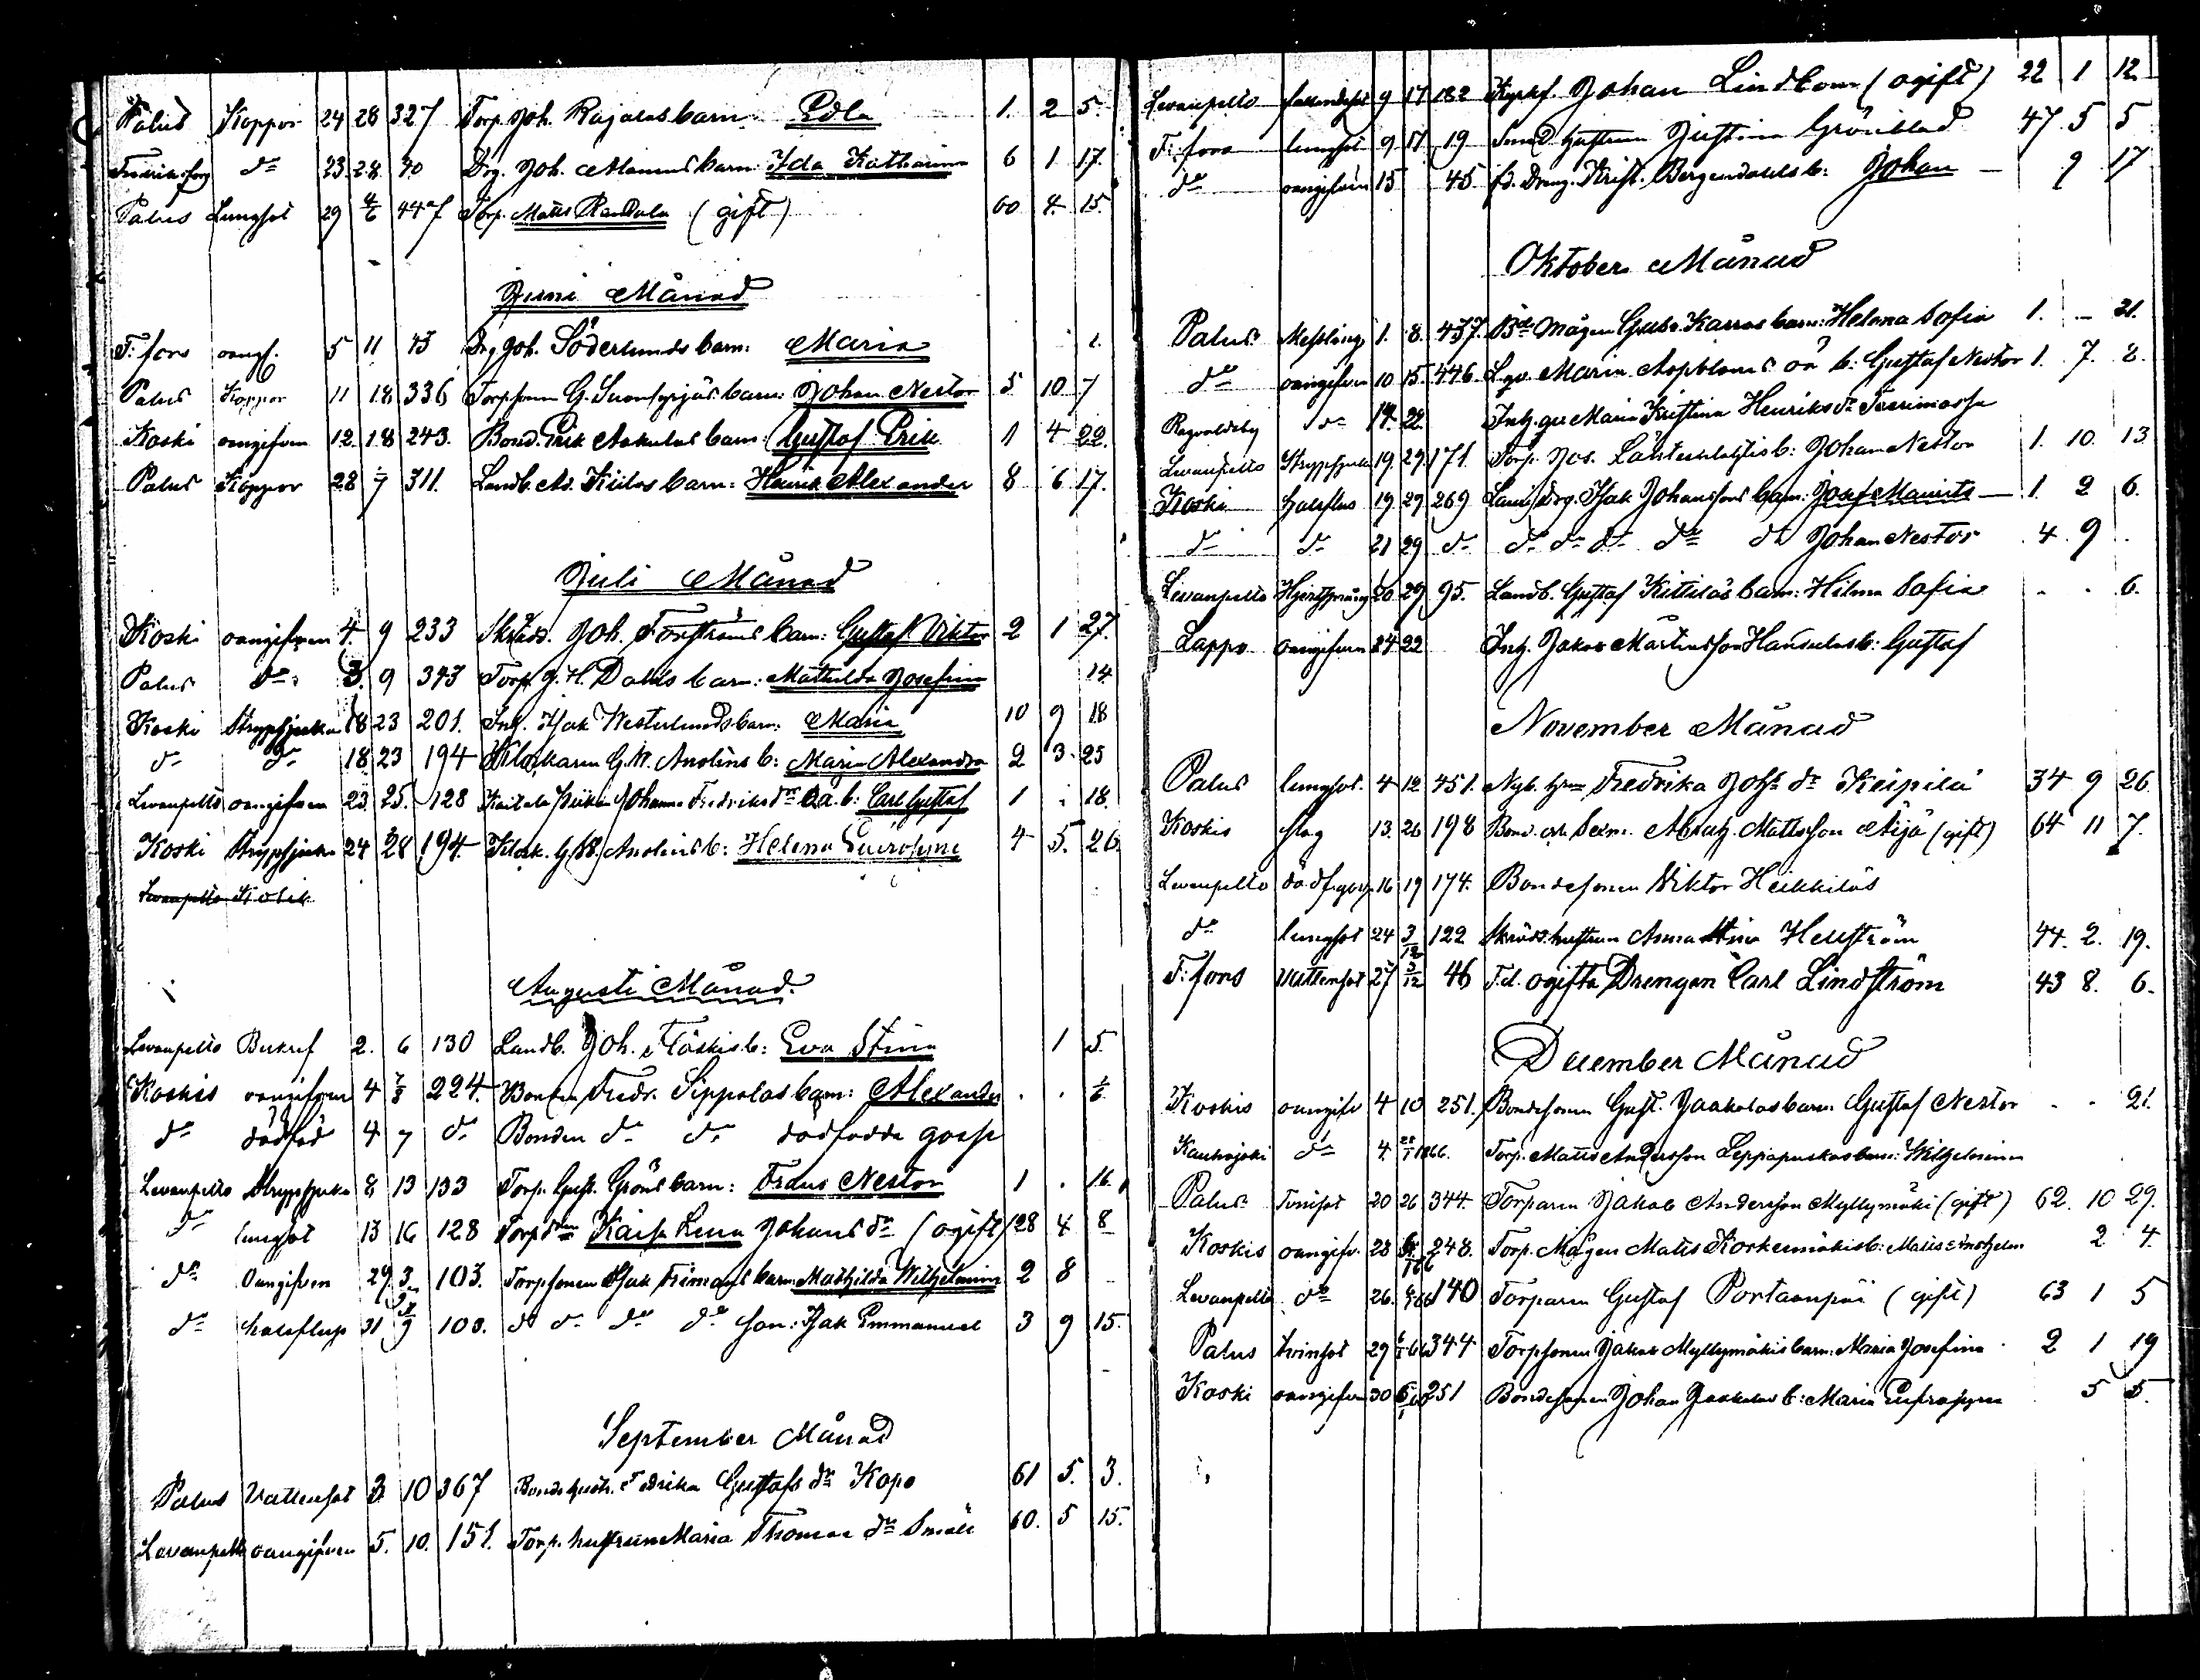 Palus Koppor 24 28 327 Torp. Joh. Rajalas barn Edla 1. 2 5.
Fredriksfors do 23 28 40 Drg. Joh. Manns barn: Ida Katharina 6 1 17.
Palus Lungsot 29 4/6 447 Torp. Matts Randala (gift) 60 4. 15.
Juni Månad
F:fors oangf. 5 11 43 Drg Joh. Söderlunds barn: Maria
Palus Koppor 11 18 336 Torpsonen G. barn: Johan Nestor 5 10 7
Koski oangifven 12. 18 243. Bond. Erik Aakulas barn: Gustaf Erik 1 4 22.
Palus Koppor 28 311. Landb. Ad. Kiilos barn: Henrik Alexander 8 6 17.
Juli Månad
Koski oangifven 4. 9 233 Skrädd. Joh. Forströms barn: Gustaf Viktor 2 1 27.
Palus do 3. 9 343 Torp. J. H. Dahls barn: Mathilda Josefina 14.
Koski Strypsjuka 18 23 201. Inh. Isak Westerlunds barn: Maria 10 9 18
do do 18 23 194 Klockaren G. W. Anolins b: Maria Alexandra 2 3. 25
Levanpelto oangifven 23 25. 128 Johanna Fredriksdr oä. b: Carl Gustaf 1 18.
Koski Strypsjuka 24 28 194. Klock. G. W. Anolins b: Helena 4 5. 26
Levanpelto Kolik
Augusti Månad.
Levanpelto Bukref 2. 6 130 Landb. Joh. Flöskis b: Eva Stina 1 5.
Koskis oangifven 4 7/8 224. Bonden Fredr. Sippolas barn: Alexander
do dödfödd 4 7 do Bonden do do dödfödde gosse
Levanpelto Strypsjuka 8 13 133 Torp. Gust. Gröns barn: Frans Nestor 1 . 16.
do lungsot 13 16 128 Torpdrn Kaisa Lena Johansdr (ogift) 28 4 8
do Oangifven 29. 3 103. Torpsonen Isak barn: Mathilda Wilhelmina 2 8
do halsfluss 31 9 100. do do do do son: Isak Emmanuel 3 9 15.
September Månad
Palus Vattensot 3. 10 367 Bondehustr. Fredrika Gustafsdr Kopo 61 5. 3.
Levanpelto oangifven 5. 10. 151. Torp. hustrun Maria Thomasdr Smäli 60. 5 15.
Levanpelto 9 17 182 Johan Lindbom (ogift) 22 1 12
F:fors lungsot 9 17 19 Smed. hustrun Justina Grönblad 47 5 5
do oangifven 15 45. fd. Dreng. Krist. Bergendahls b: Johan — 9 17
Oktober Månad
Palus Messling 1. 8. 437. Bde Mågen Gustav Karras barn: Helena Sofia 1. - 21.
do oangifven 10 15. 446. Lgo. Maria Aspbloms oä b: Gustaf Nestor 1. 7. 2.
Ragvaldsby do 14. 22. Inh. Maria Kristina Henriksdr
Levanpelto Strypsjuka 19. 29. 171. Torp. Jos. Lähteenlahtis b: Johan Nestor 1. 10. 13
Koski halsfluss 19 29 269 Drg. Isak Johanssons barn: Josef Maurits — 1. 2 6.
do do 21 29 do do do do do do Johan Nestor 4. 9
Levanpelto 26 29 95. Landb. Gustaf Kittiläs barn: Hilma Sofia . . 6.
Lappo oangifven 14 22 Inh. Jakob Mårtensson b: Gustaf
November Månad
Palus lungsot. 4 12 451. Nyb. Fredrika Johsdr Keipilä 34 9 26.
Koskis slag 13. 26 198 Bond. och Sexm. Matts. Mattsson Äijö (gift) 64 11 7.
Levanpelto 16 19 174. Bondesonen Viktor Heikkiläs
do lungsot 24 3/12 122 Skrädd. hustrun Anna Stina Hellström 44. 2. 19.
F:fors Vattensot 27 3/12 46 F.d. ogifta Drengen Carl Lindström 43 8. 6.
December Månad
Koskis oangifv 4 10 251. Bondesonen Gust. Jaakolas barn: Gustaf Nestor . . 21.
Kauhajoki do 4. Torp. Matts Andersson Leppapuskas barn: Wilhelmina
Palus Tvinsot 20 26 344. Torparen Jakob Andersson Myllymäki (gift) 62. 10 29.
Koskis oangifv. 28 248. Torp. Mågen Matts Korkeemäkis b: Matts 2 4.
Levanpelto do 26. 140 Torparen Gustaf Portaanpää (gift) 63 1 5
Palus tvinsot 29 344 Torpsonen Jakob Myllymäkis barn: Maria Josefina 2 1 19
Koski oangifven 30 251 Bondesonen Johan Jaakolas b: Maria Eufrosyne 5 5.